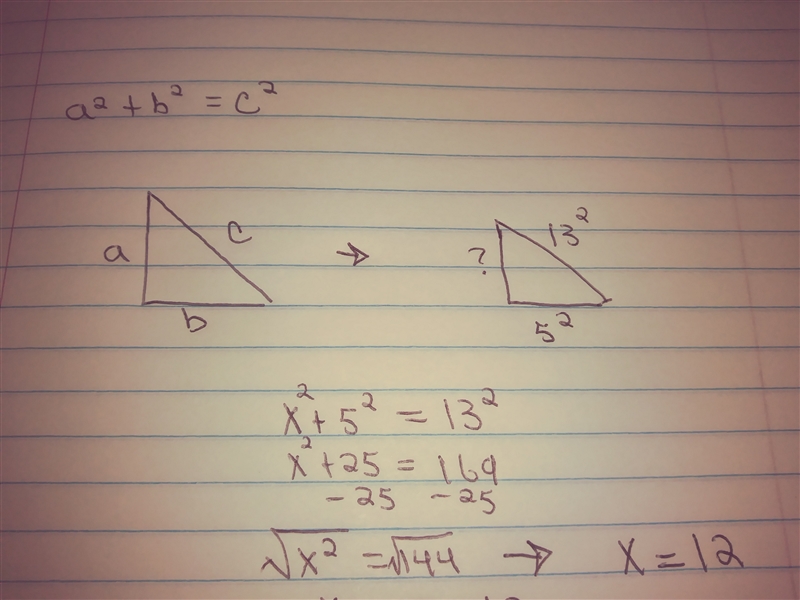 a² + b² = c²
a c → ? 13²
b 5²
x² + 5² = 13²
x² + 25 = 169
-25 -25
√x² = √144 → x = 12